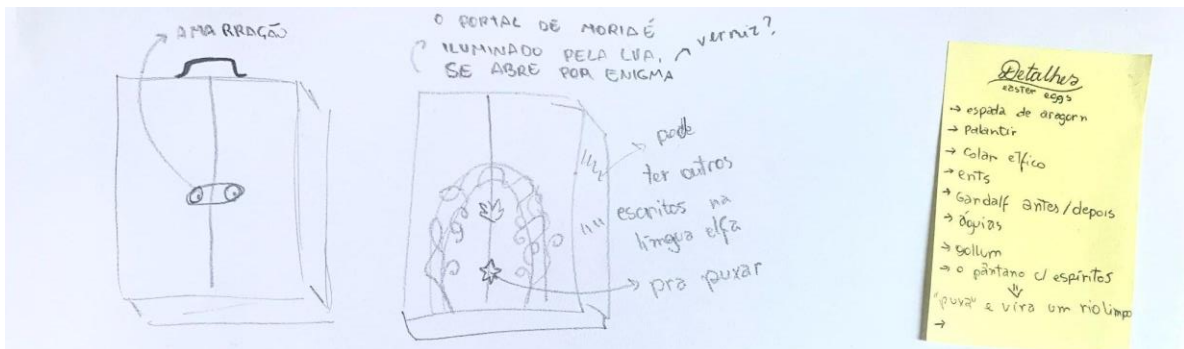 AMARRAÇÃO
O PORTAL DE MORIA É
ILUMINADO PELA LUA,
SE ABRE POR ENIGMA
verniz?
pode
ter outros
escritos na
língua elfa
pra puxar
Detalhes
easter eggs
→ espada de aragorn
→ Palantir
→ Colar elfico
→ ents
→ Gandalf antes/depois
→ águias
→ gollum
→ o pântano c/ espíritos
"puxa" e vira um rio limpo
→